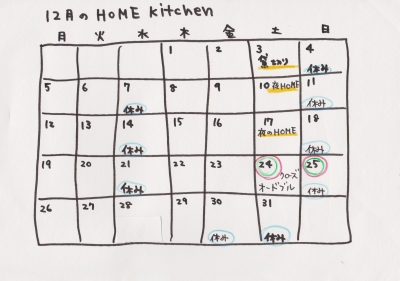 12月の HOME kitchen
月 火 水 木 金 土 日
1 2 3 4
休み
5 6 7 8 9 10 夜HOME 11
休み 休み
12 13 14 15 16 17 18
夜のHOME
休み 休み
19 20 21 22 23 24 25
クローズ
休み オードブル 休み
26 27 28 29 30 31
休み 休み